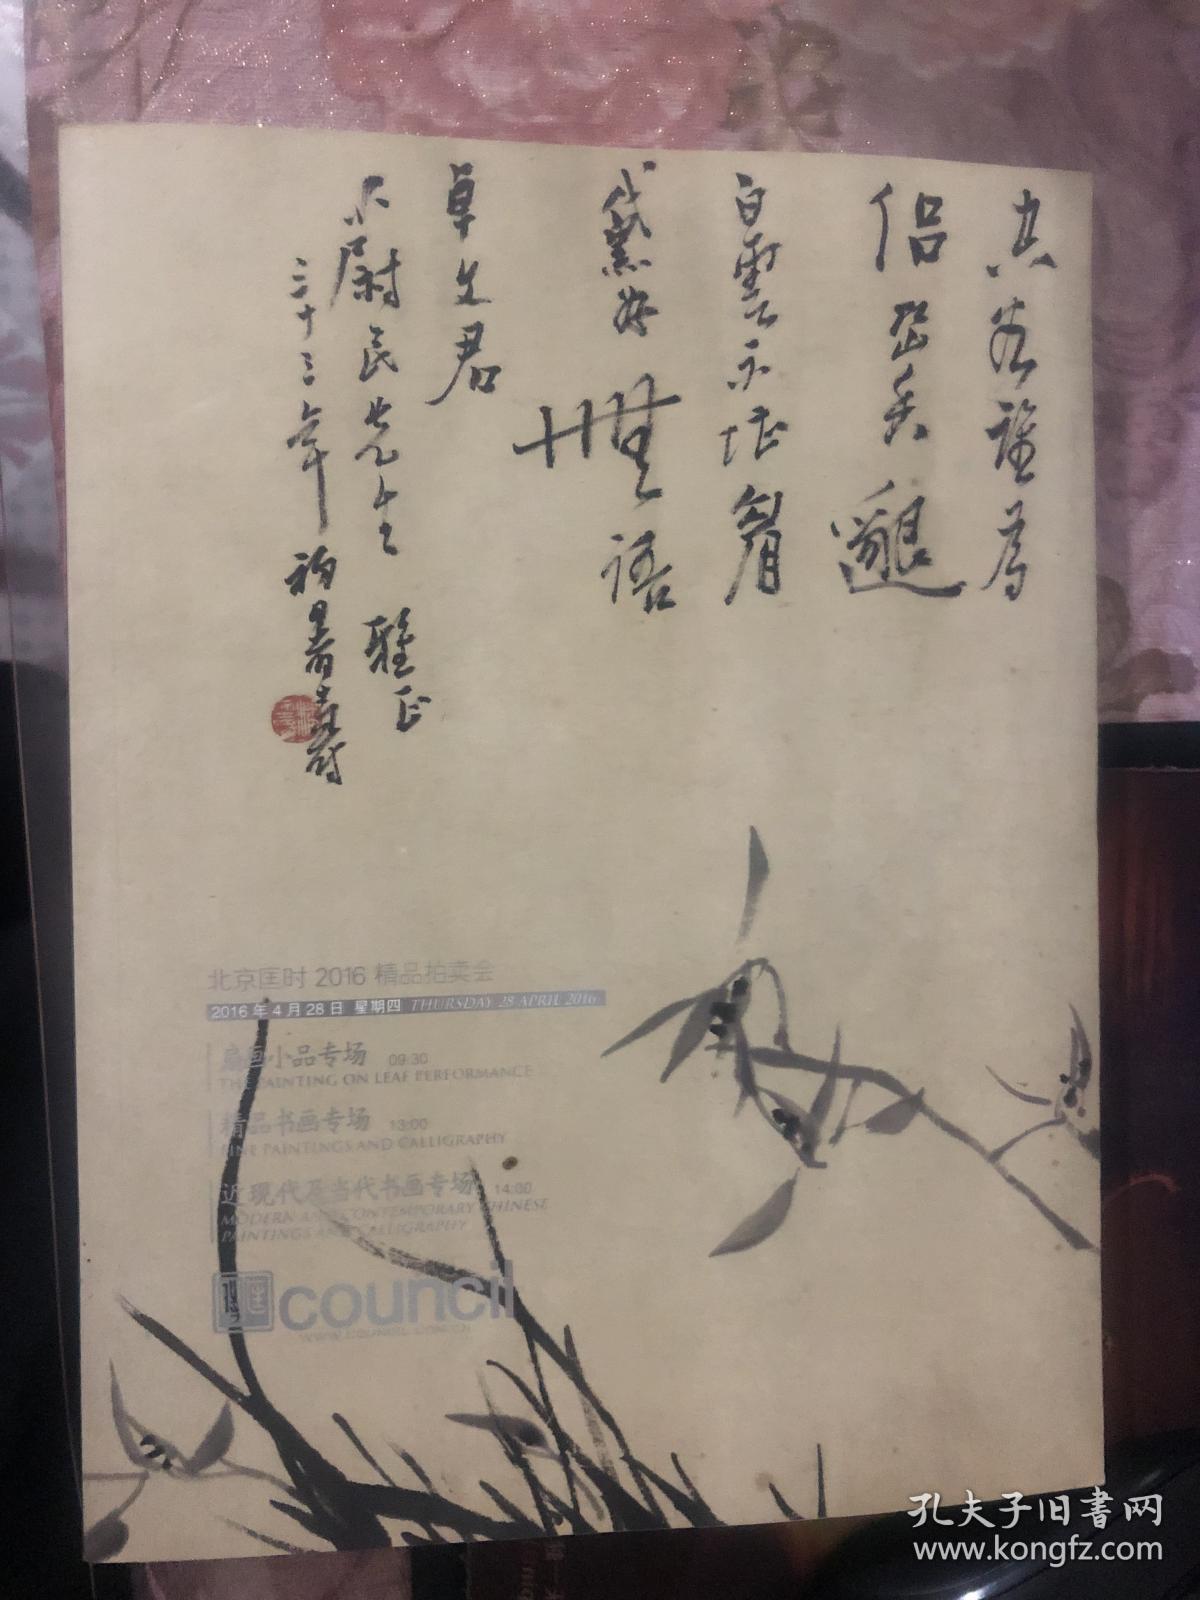 空谷誰為
侶香邈
白雲不堪
黛無語
卓文君
尉民先生 雅正
三十三年
北京匡时 2016 精品拍卖会
2016 年 4 月 28 日 星期四 THURSDAY 28 APRIL 2016
扇画小品专场 09:30
THE PAINTING ON LEAF PERFORMANCE
精品书画专场 13:00
FINE PAINTINGS AND CALLIGRAPHY
近现代及当代书画专场 14:00
MODERN AND CONTEMPORARY CHINESE
PAINTINGS AND CALLIGRAPHY
council
www.council.com.cn
孔夫子旧書网
www.kongfz.com